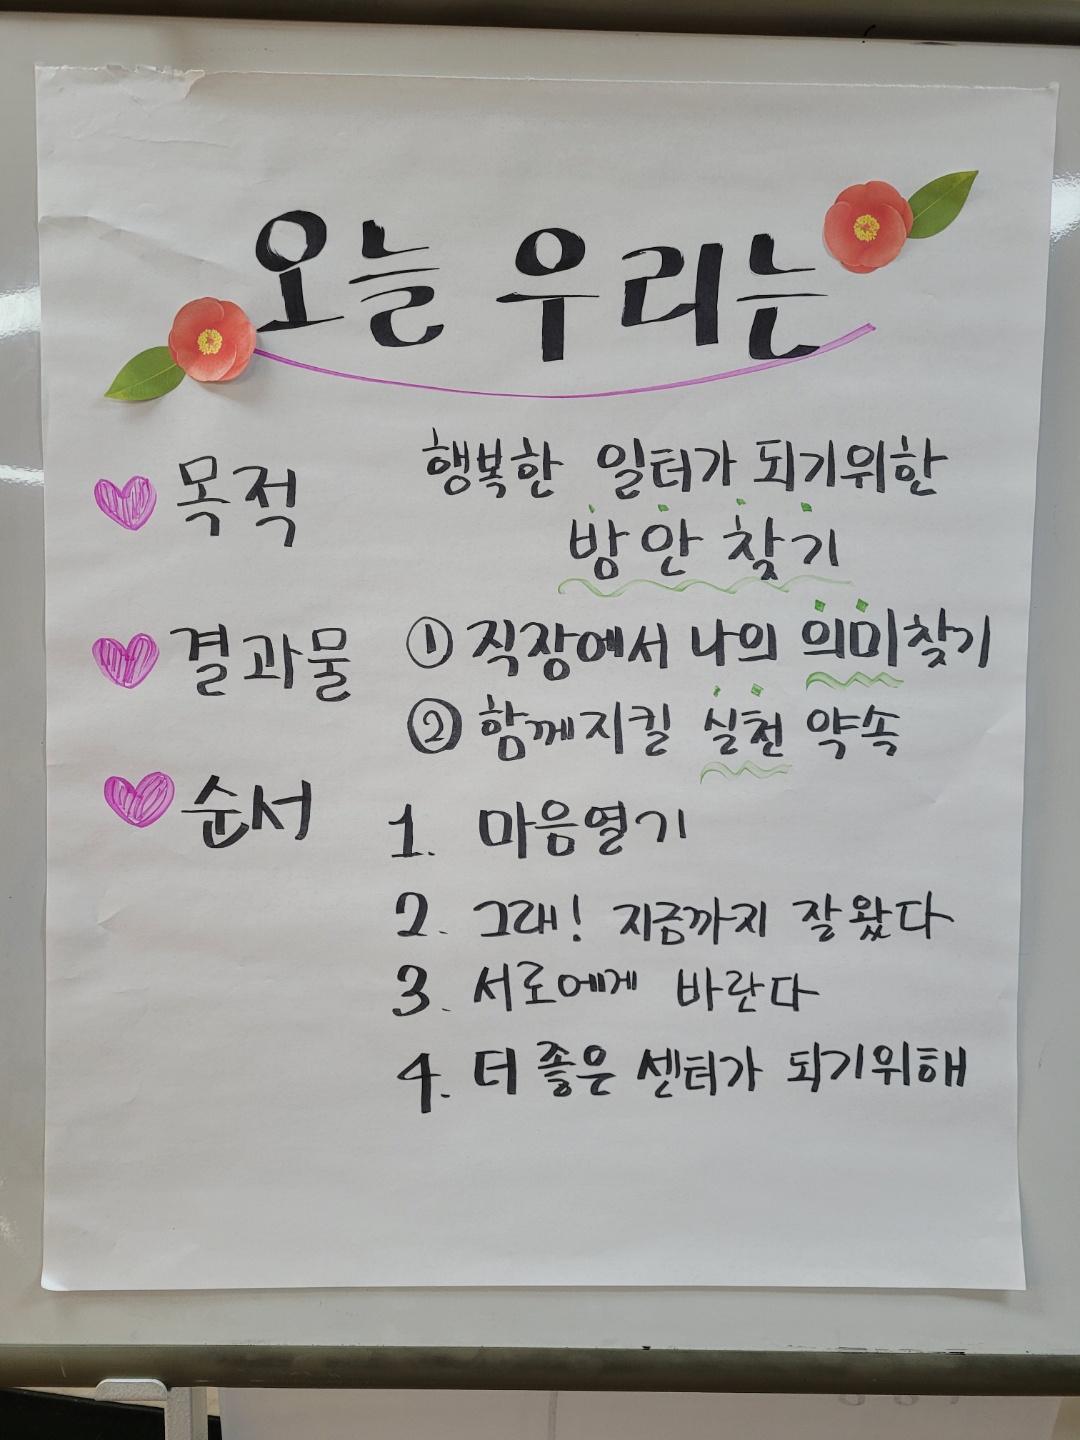 오늘 우리는
목적 행복한 일터가 되기위한
방안 찾기
결과물 ① 직장에서 나의 의미찾기
② 함께지킬 실천 약속
순서 1. 마음열기
2. 그래! 지금까지 잘 왔다
3. 서로에게 바란다
4. 더 좋은 센터가 되기위해